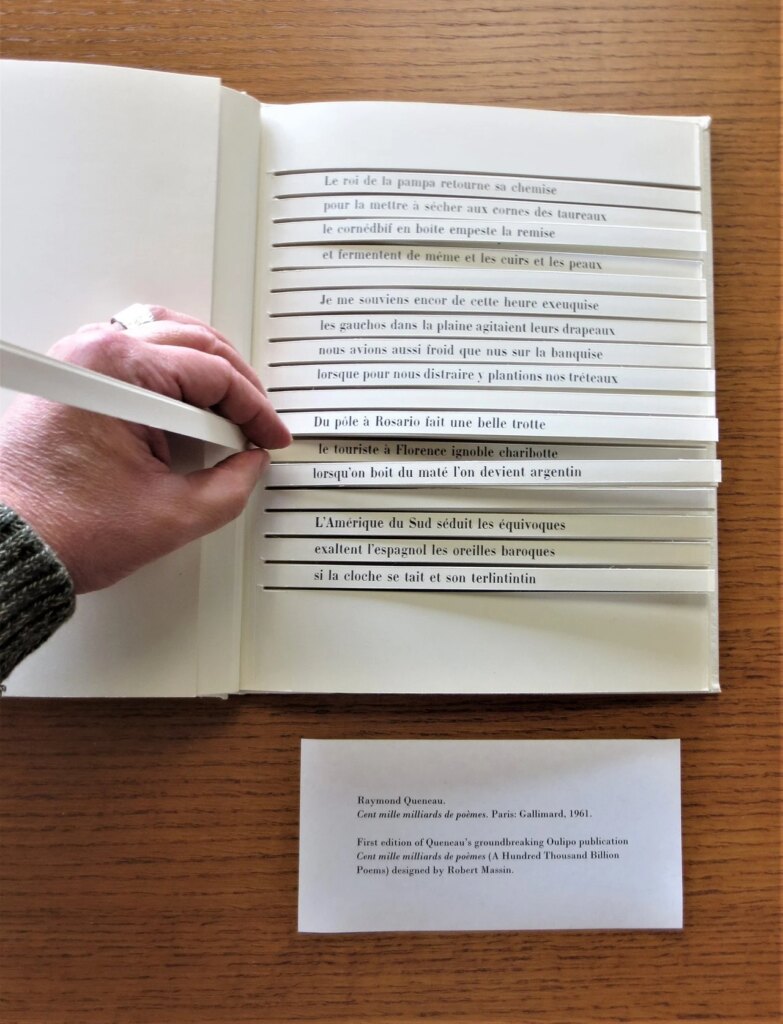 Le roi de la pampa retourne sa chemise
pour la mettre à sécher aux cornes des taureaux
le cornédbîf en boîte empeste la remise
et fermentent de même et les cuirs et les peaux
Je me souviens encor de cette heure exeuquise
les gauchos dans la plaine agitaient leurs drapeaux
nous avions aussi froid que nus sur la banquise
lorsque pour nous distraire y plantions nos tréteaux
Du pôle à Rosario fait une belle trotte
le touriste à Florence ignoble charibotte
lorsqu'on boit du maté l'on devient argentin
L'Amérique du Sud séduit les équivoques
exaltent l'espagnol les oreilles baroques
si la cloche se tait et son terlintintin
Raymond Queneau.
Cent mille milliards de poèmes. Paris: Gallimard, 1961.
First edition of Queneau's groundbreaking Oulipo publication
Cent mille milliards de poèmes (A Hundred Thousand Billion
Poems) designed by Robert Massin.